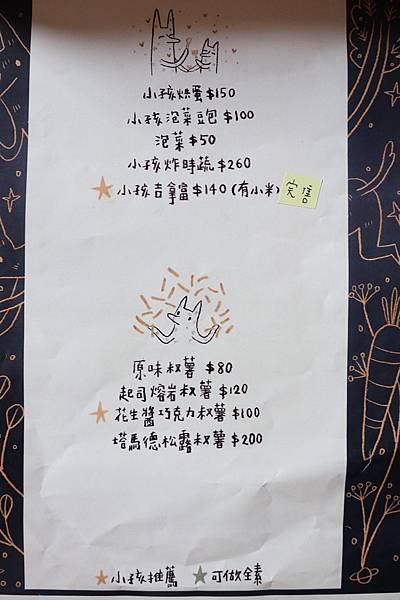 小孩烘蛋 $150
小孩泡菜豆包 $100
泡菜 $50
小孩炸時蔬 $260
★ 小孩吉拿富 $140 (有小米) 完售
原味叔薯 $80
起司熔岩叔薯 $120
★ 花生醬巧克力叔薯 $100
塔馬德松露叔薯 $200
★小孩推薦 ★可做全素